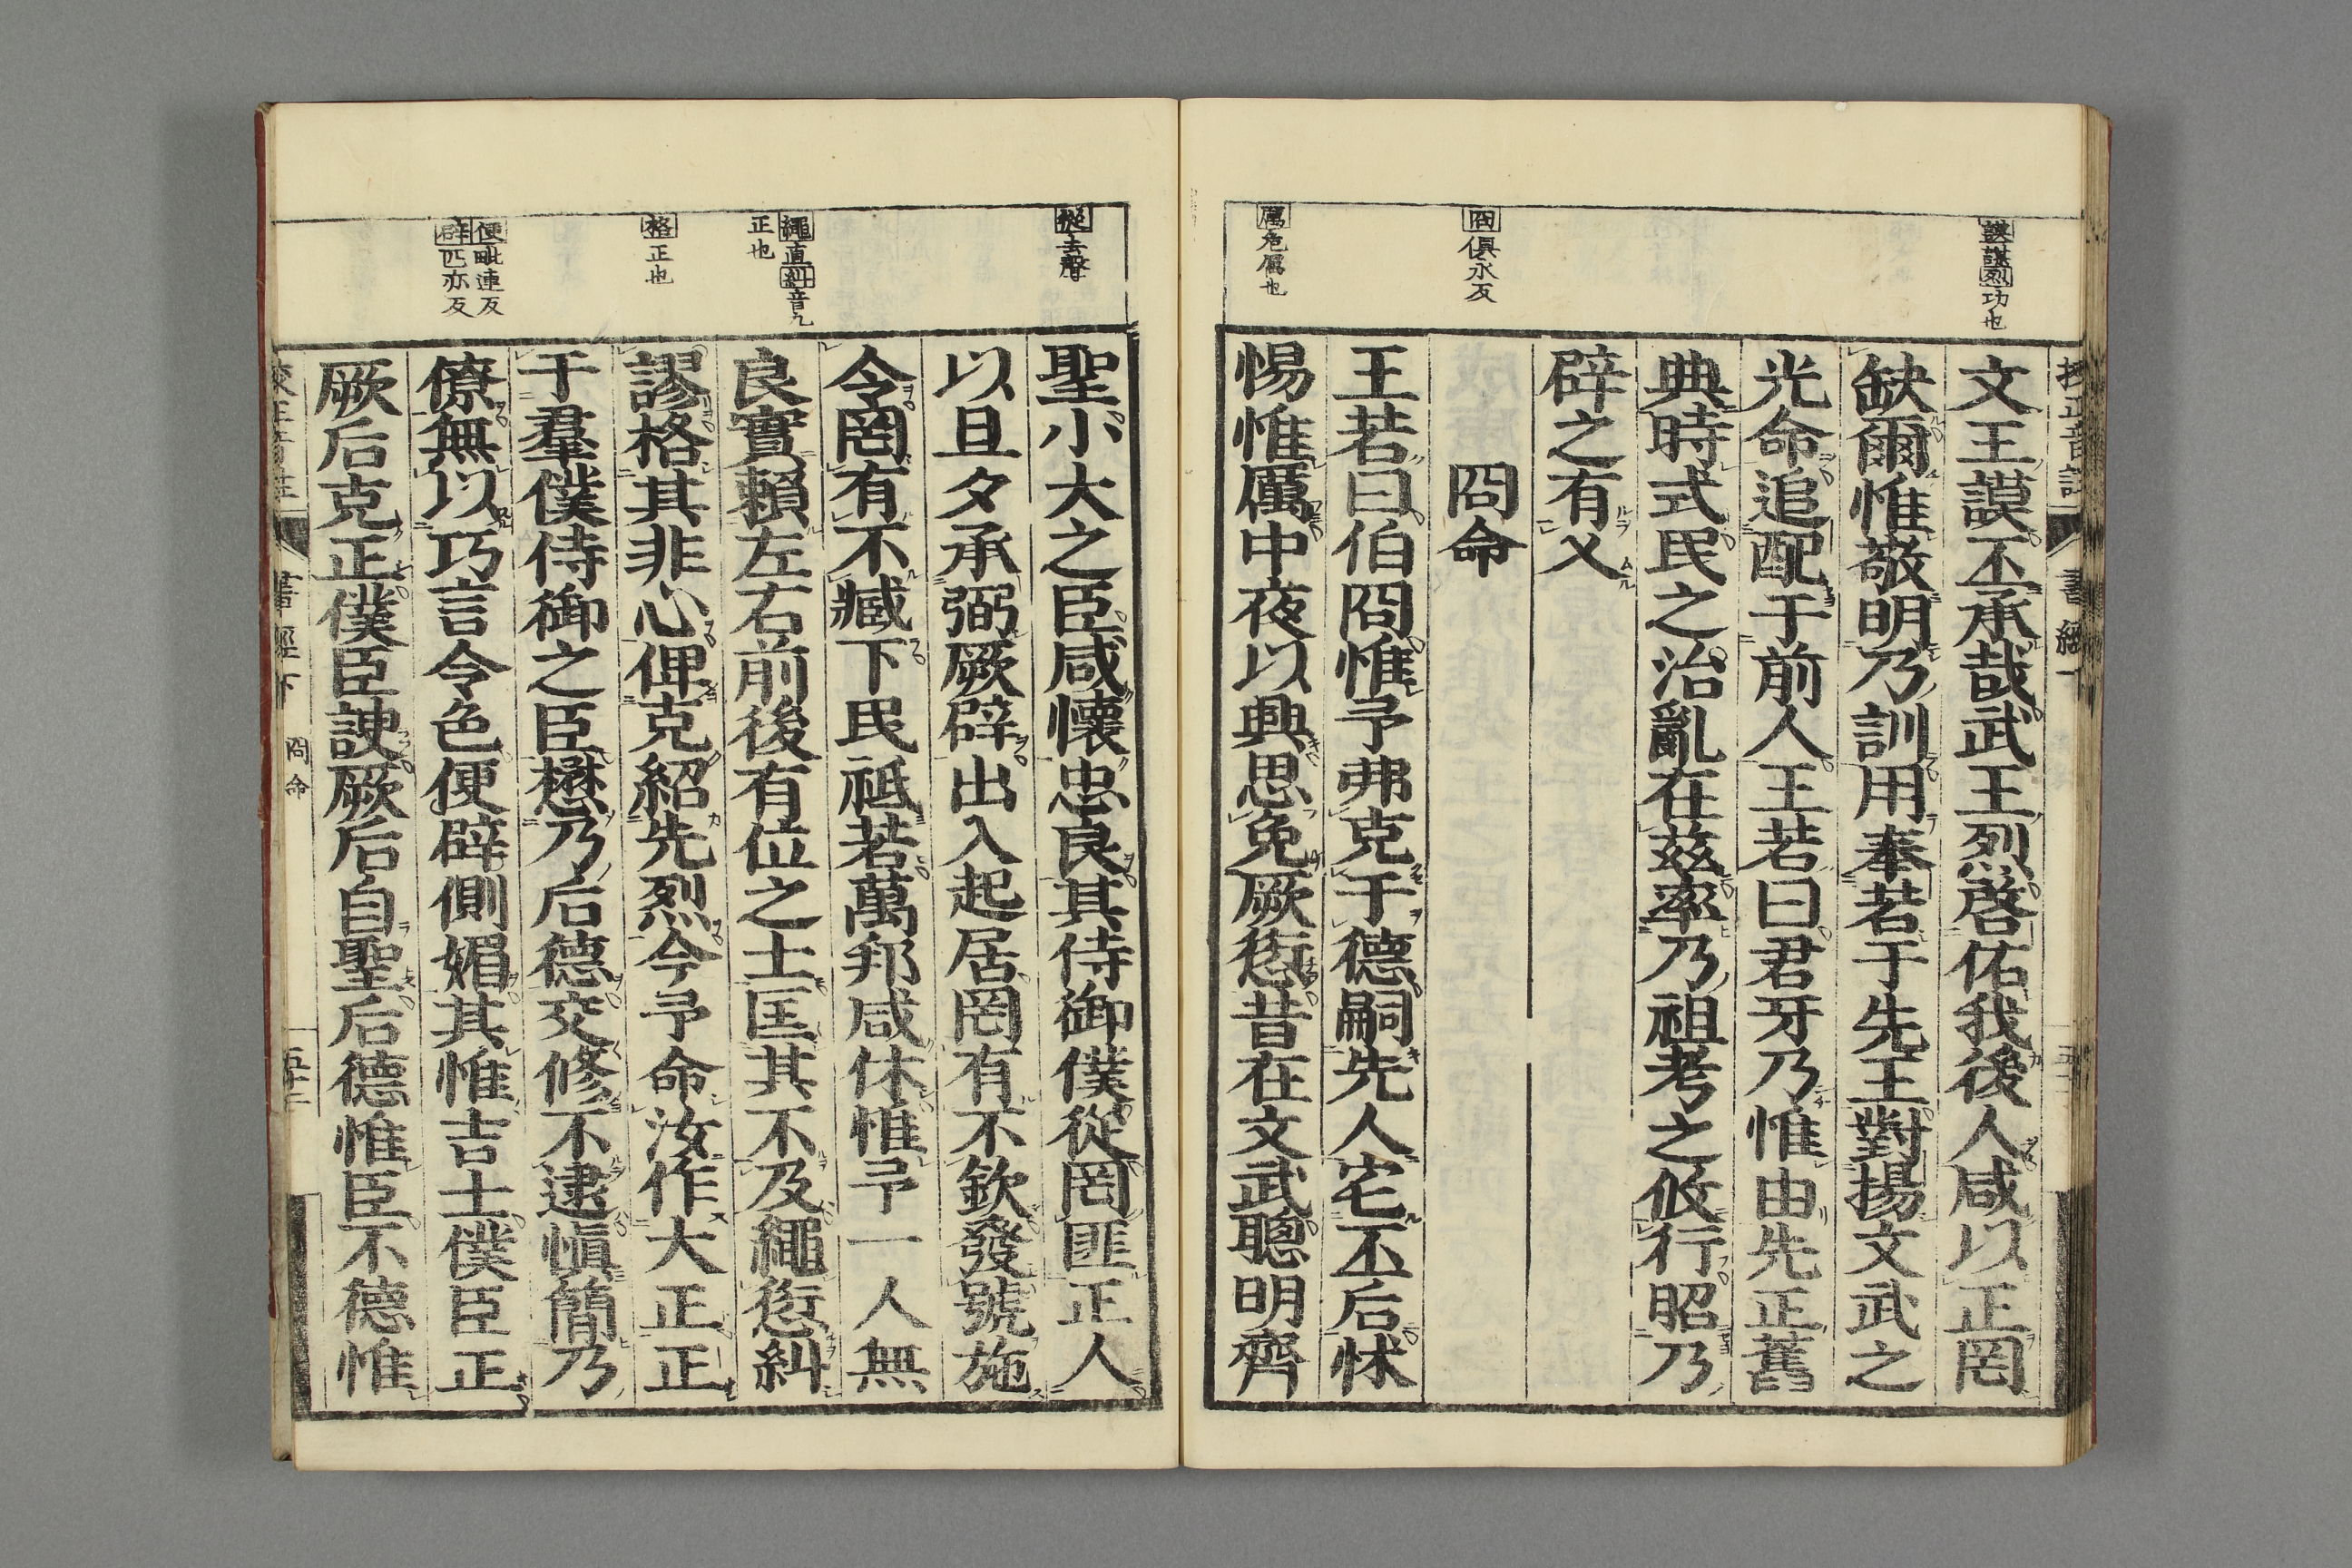 謨謀烈功也
冏俱永反
厲危厲也
文王謨丕承哉武王烈啓佑我後人咸以正罔
缺爾惟敬明乃訓用奉若于先王對揚文武之
光命追配于前人王若曰君牙乃惟由先正舊
典時式民之治亂在茲率乃祖考之攸行昭乃
辟之有乂
冏命
王若曰伯冏惟予弗克于德嗣先人宅丕后怵
惕惟厲中夜以興思免厥愆昔在文武聰明齊
從去聲
繩直糾音九
正也
格正也
便毗連反
辟匹亦反
聖小大之臣咸懷忠良其侍御僕從罔匪正人
以旦夕承弼厥辟出入起居罔有不欽發號施
令罔有不臧下民祗若萬邦咸休惟予一人無
良實賴左右前後有位之士匡其不及繩愆糾
謬格其非心俾克紹先烈今予命汝作大正正
于羣僕侍御之臣懋乃后德交修不逮愼簡乃
僚無以巧言令色便辟側媚其惟吉士僕臣正
厥后克正僕臣諛厥后自聖后德惟臣不德惟
書經下 冏命